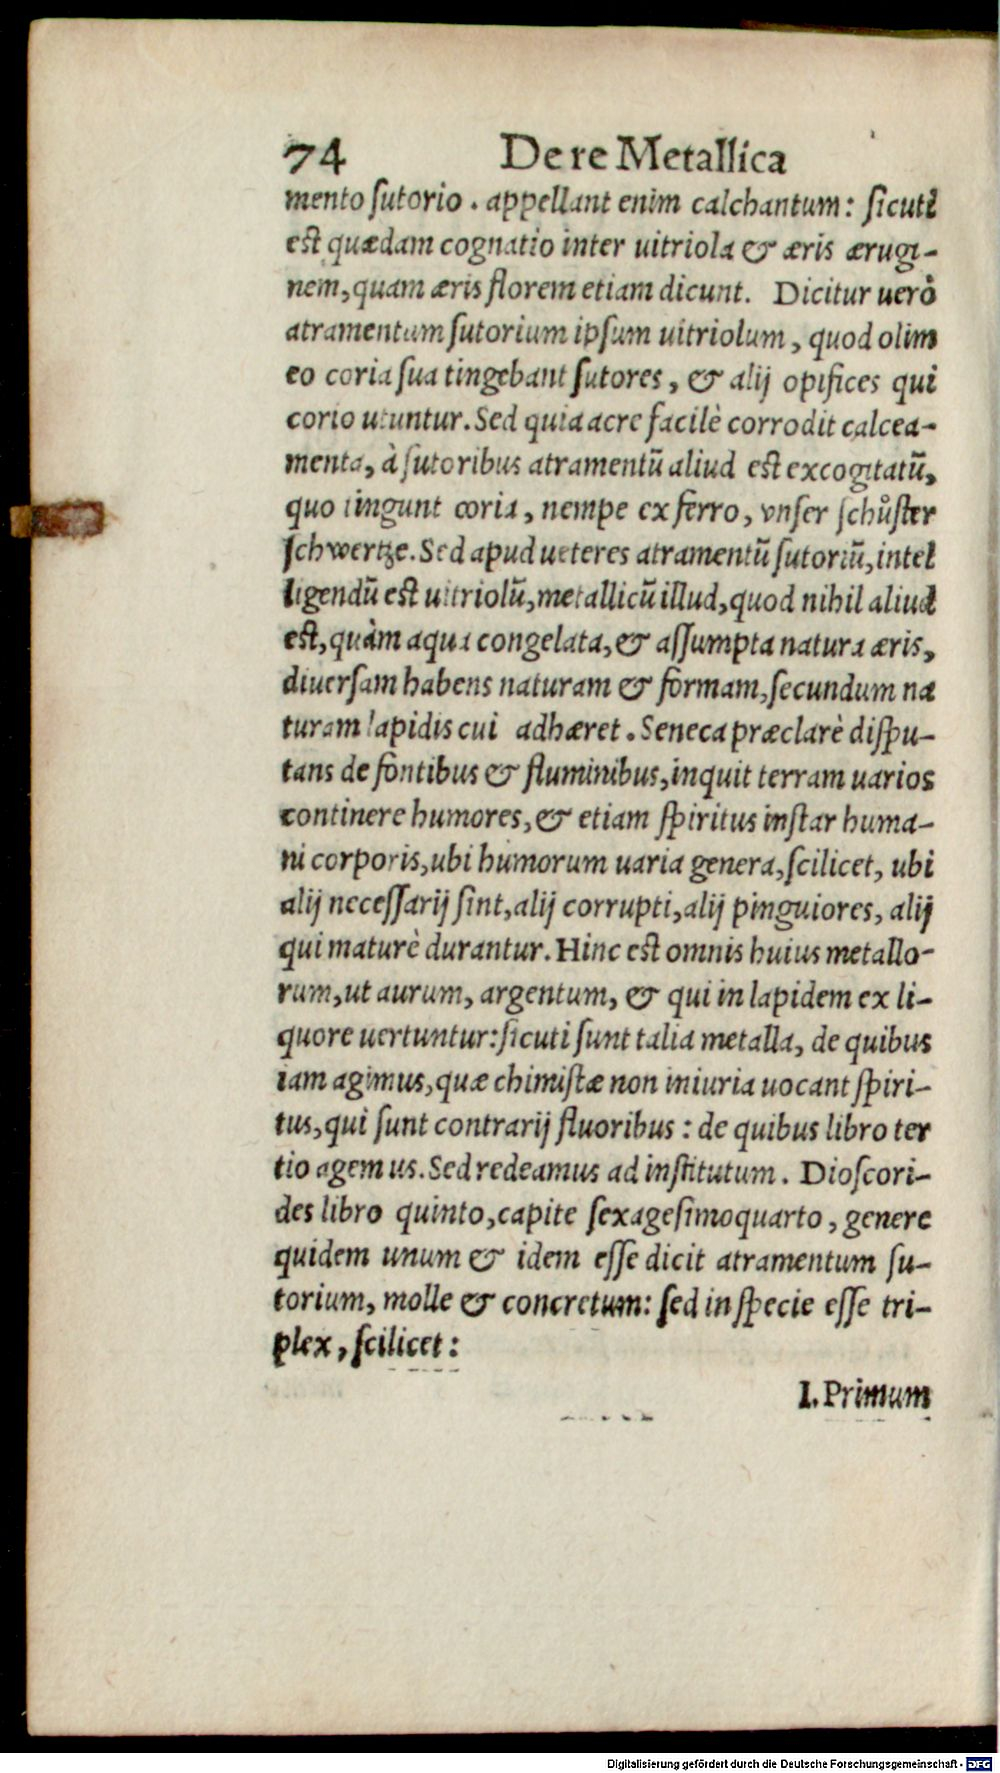 74 De re Metallica
mento ſutorio. appellant enim calchantum: ſicuti
eſt quædam cognatio inter uitriola & æris ærugi-
nem, quam æris florem etiam dicunt. Dicitur uerò
atramentum ſutorium ipſum uitriolum, quod olim
eo coria ſua tingebant ſutores, & alij opifices qui
corio utuntur. Sed quia acre facilè corrodit calcea-
menta, à ſutoribus atramentũ aliud eſt excogitatũ,
quo tingunt coria, nempe ex ferro, vnſer ſchůſter
ſchwertze. Sed apud ueteres atramentũ ſutoriũ, intel
ligendũ eſt uitriolũ, metallicũ illud, quod nihil aliud
eſt, quàm aqua congelata, & aſſumpta natura æris,
diuerſam habens naturam & formam, ſecundum na
turam lapidis cui adhæret. Seneca præclarè diſpu-
tans de fontibus & fluminibus, inquit terram uarios
continere humores, & etiam ſpiritus inſtar huma-
ni corporis, ubi humorum uaria genera, ſcilicet, ubi
alij neceſſarij ſint, alij corrupti, alij pinguiores, alij
qui maturè durantur. Hinc eſt omnis huius metallo-
rum, ut aurum, argentum, & qui in lapidem ex li-
quore uertuntur: ſicuti ſunt talia metalla, de quibus
iam agimus, quæ chimiſtæ non iniuria uocant ſpiri-
tus, qui ſunt contrarij fluoribus: de quibus libro ter
tio agemus. Sed redeamus ad inſtitutum. Dioſcori-
des libro quinto, capite ſexageſimoquarto, genere
quidem unum & idem eſſe dicit atramentum ſu-
torium, molle & concretum: ſed in ſpecie eſſe tri-
plex, ſcilicet:
I. Primum
Digitalisierung gefördert durch die Deutsche Forschungsgemeinschaft - DFG